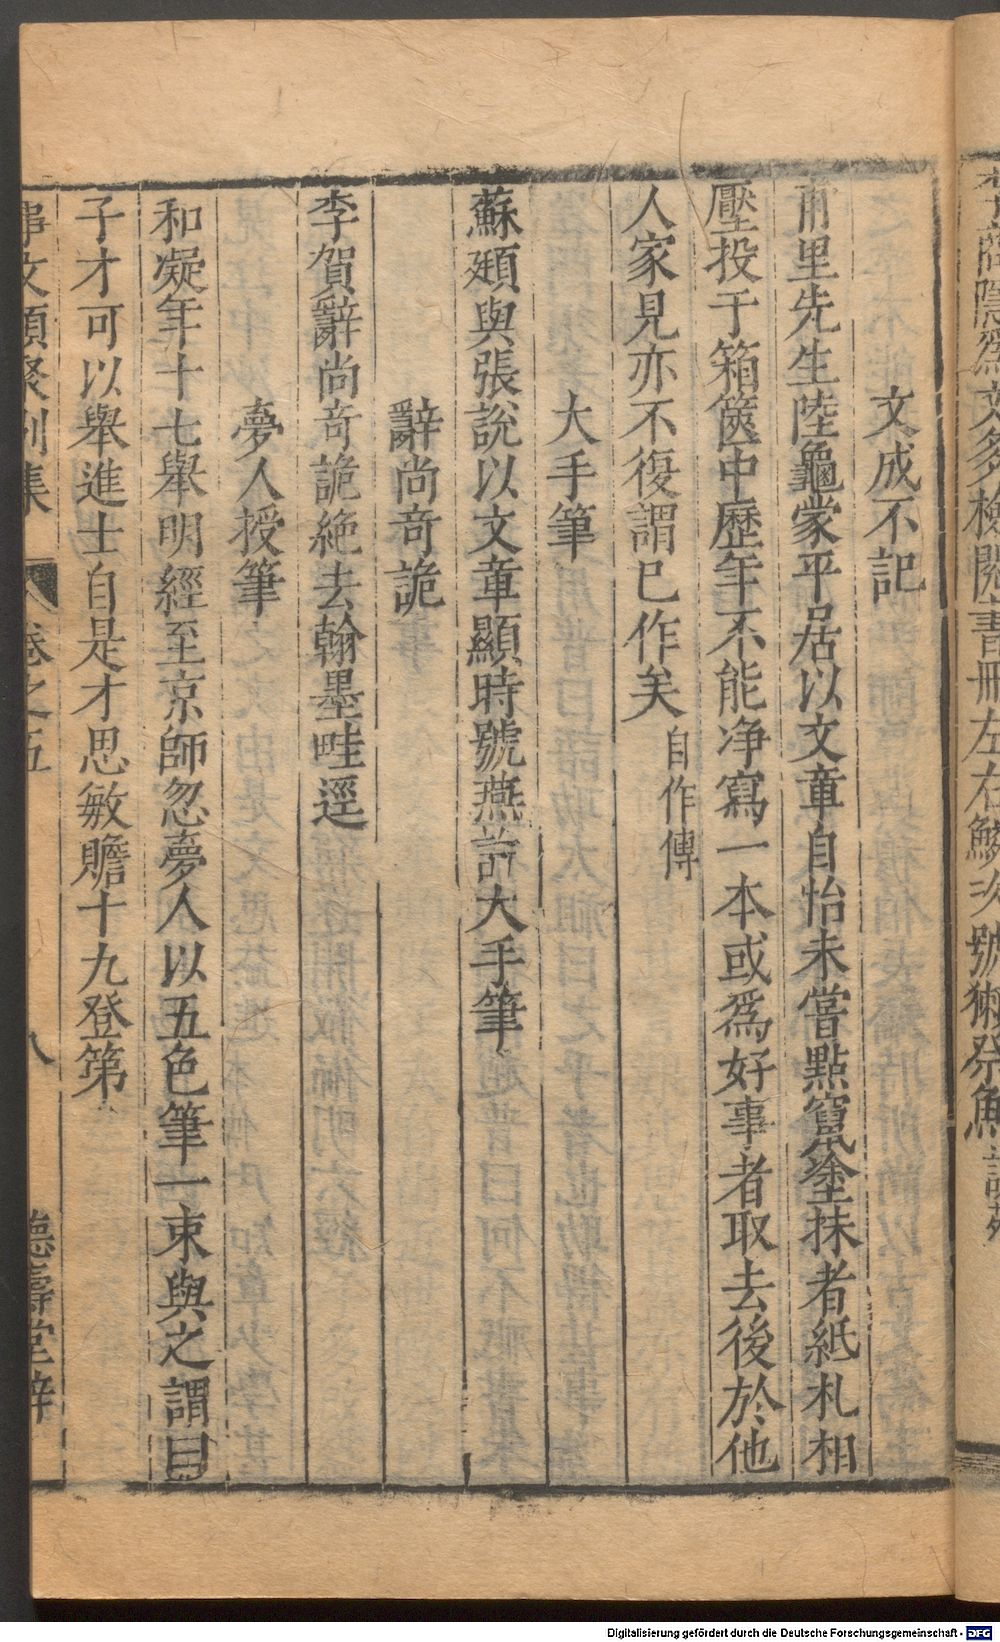 李商隱爲文多檢閱書冊左右鱗次號獺祭魚談苑
文成不記
甫里先生陸龜蒙平居以文章自怡未嘗點竄塗抹者紙札相
壓投于箱篋中歷年不能净寫一本或爲好事者取去後於他
人家見亦不復謂已作矣自作傳
大手筆
蘇頲與張說以文章顯時號燕許大手筆
辭尚奇詭
李賀辭尚奇詭絶去翰墨畦逕
夢人授筆
和凝年十七舉明經至京師忽夢人以五色筆一束與之謂曰
子才可以舉進士自是才思敏贍十九登第
事文類聚别集
卷之五
八
德壽堂梓
Digitalisierung gefördert durch die Deutsche Forschungsgemeinschaft - DFG